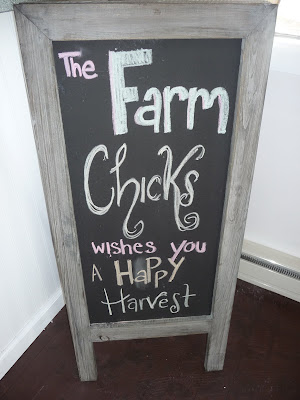 The
Farm
Chicks
wishes you
A HaPPy
Harvest